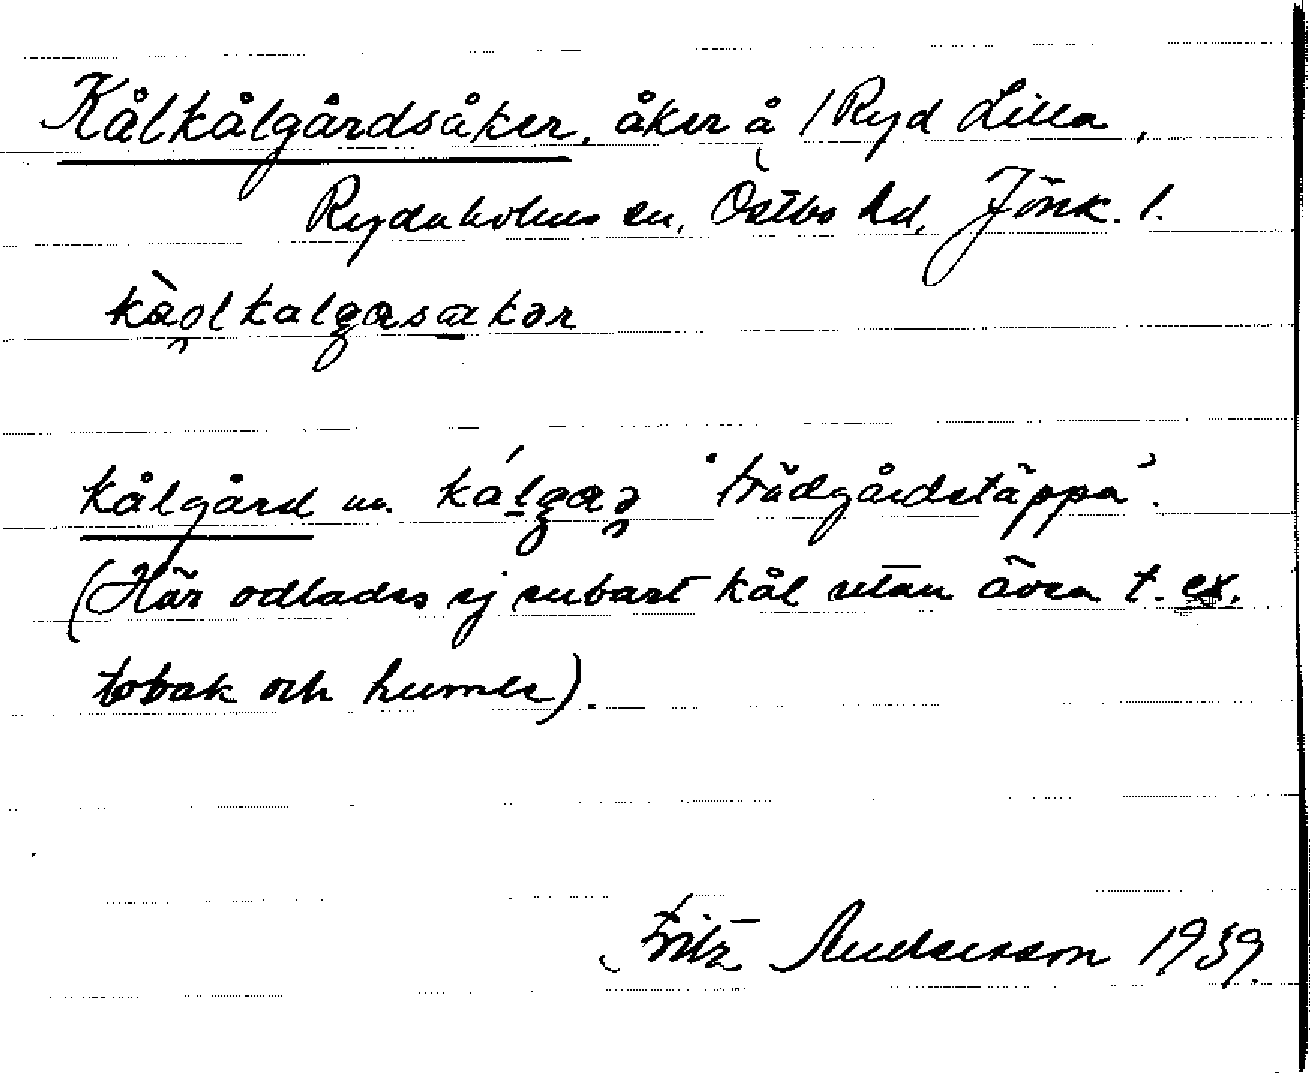 Kålkålgårdsåker, åker å /Ryd Lilla,
Rydaholms sn, Östbo hd, Jönk. l.
kålgård m. 'trädgårdstäppa'.
(Här odlades ej enbart kål utan även t. ex.
tobak och humle).
Fritz Andersson 1939.